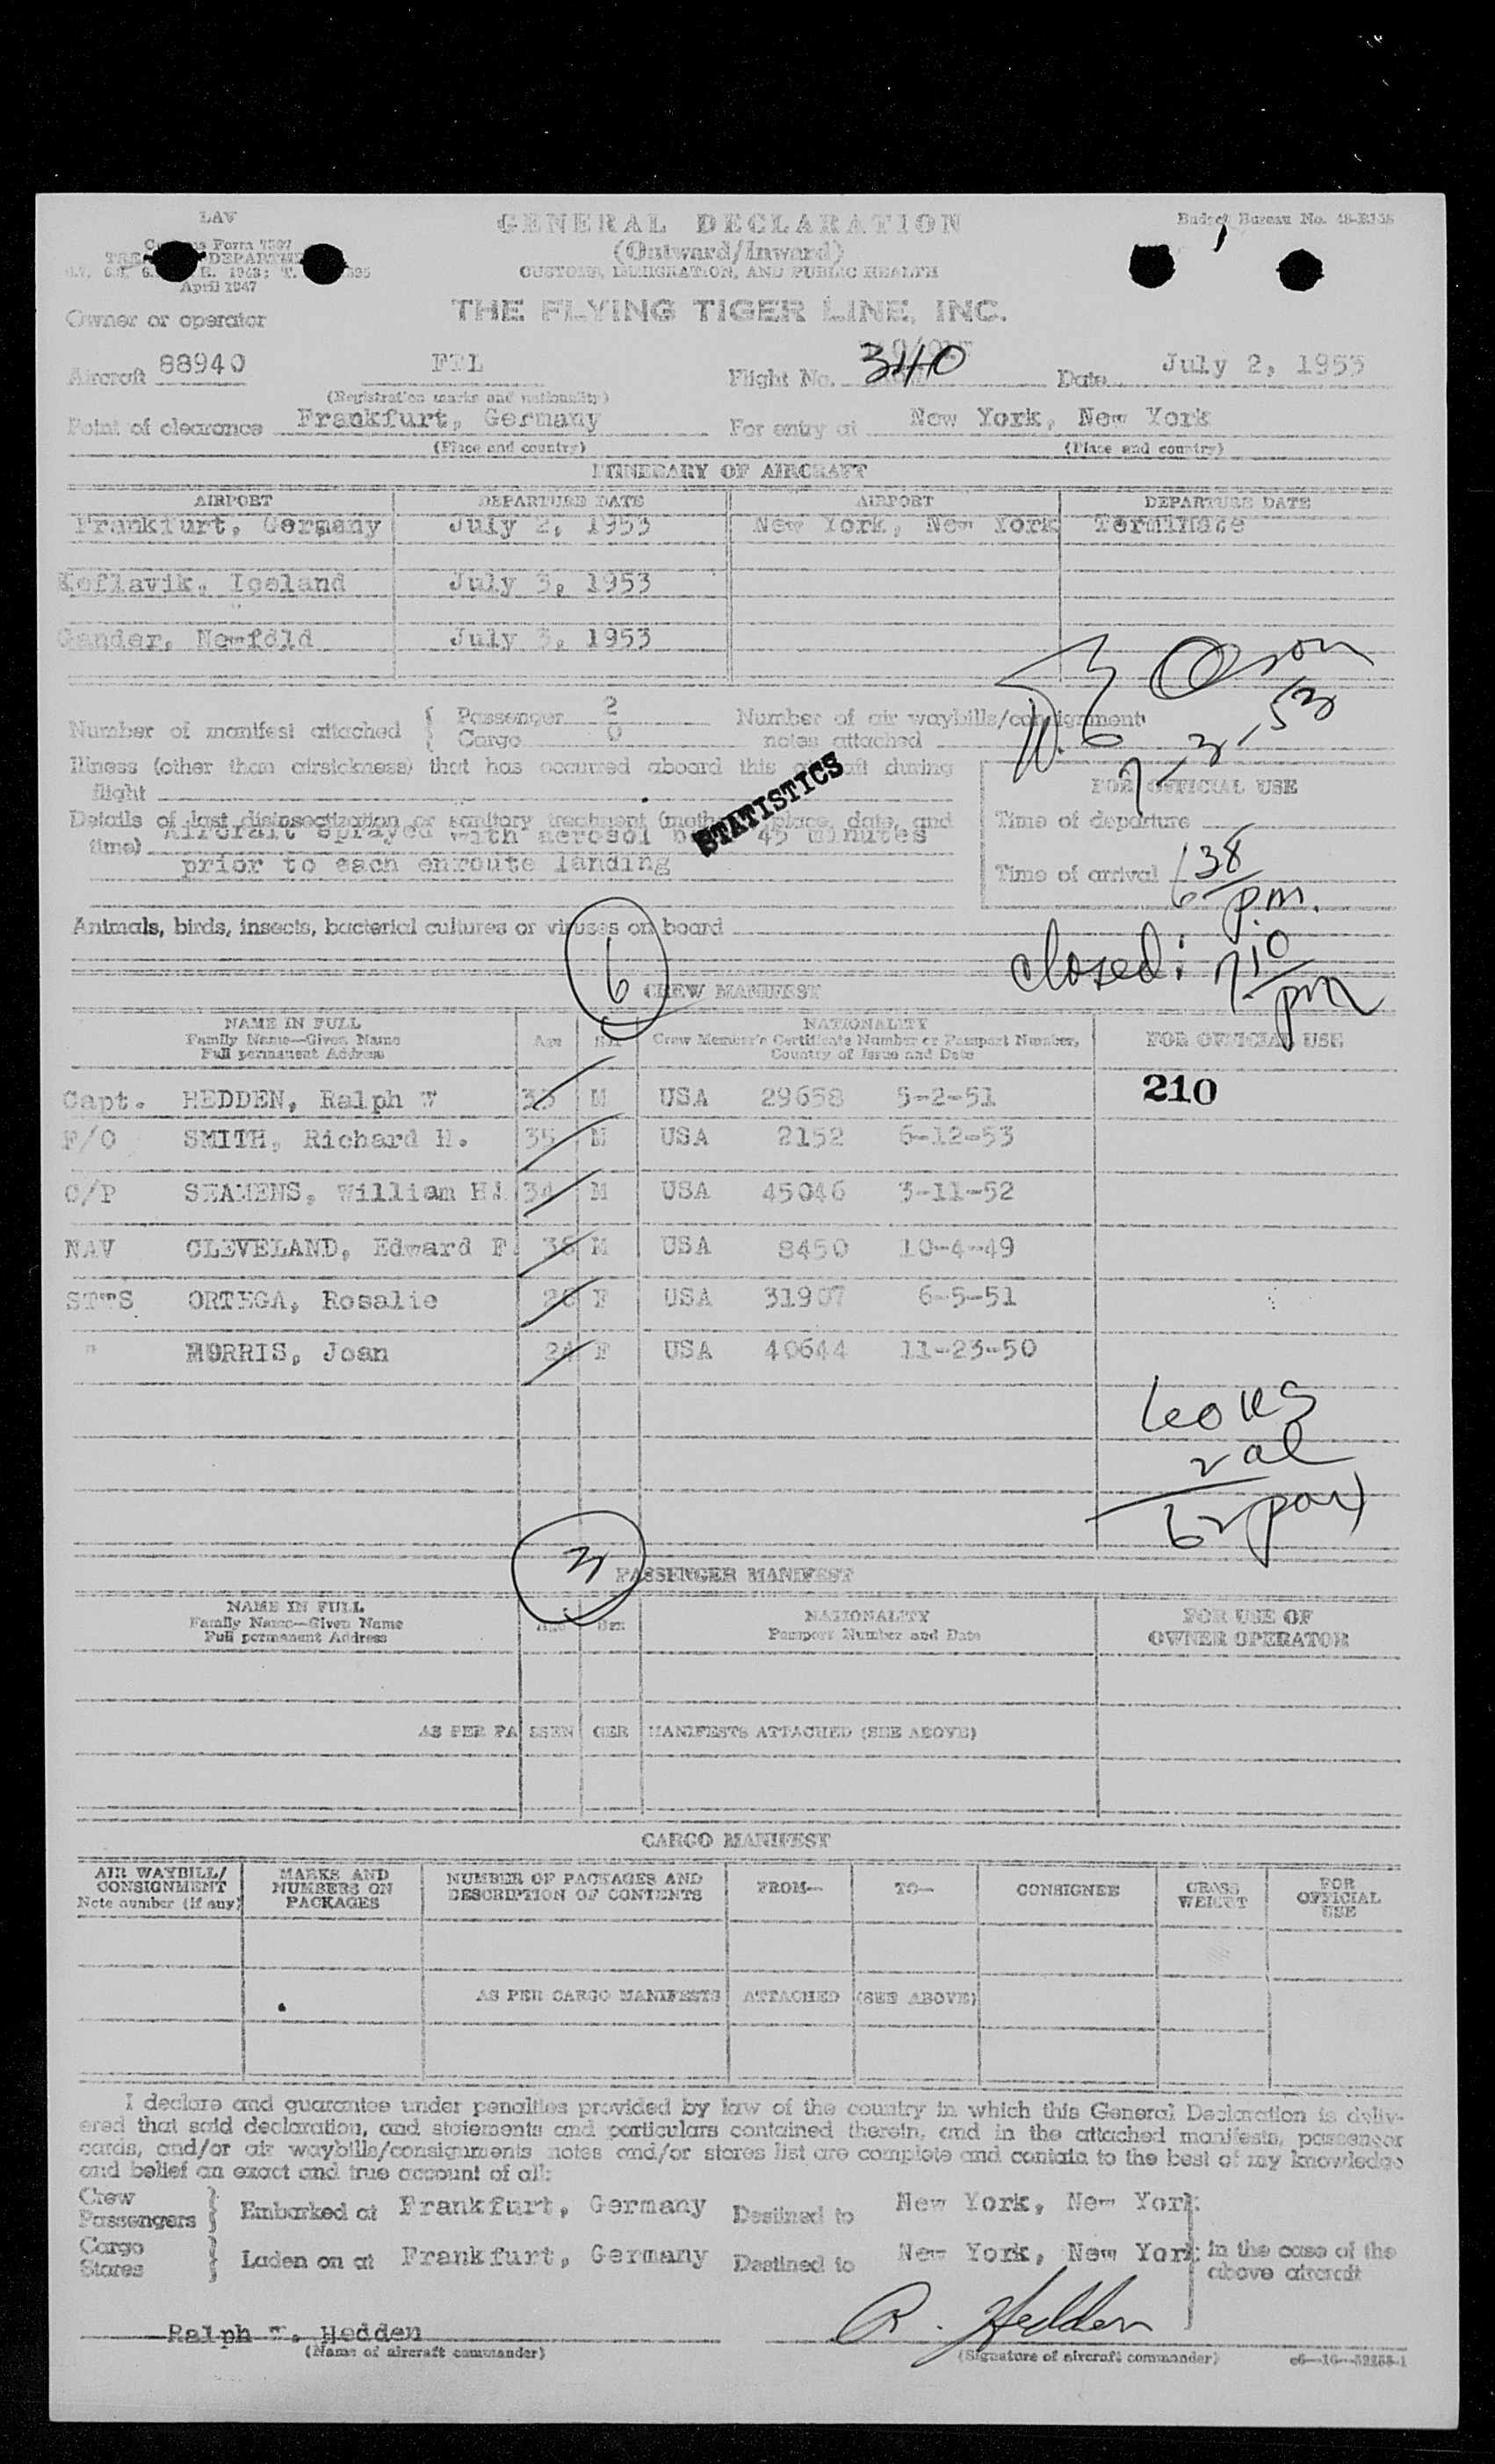 LAV
GENERAL DECLARATION
Budget Bureau No.
Form 7507
(Outward/Inward)
DEPARTME
CUSTOMS, IMMIGRATION, AND PUBLIC HEALTH
April 1947
THE FLYING TIGER LINE, INC.
Owner or operator
Aircraft 88940 FTL Flight No. 340 Date July 2, 1953
(Registration marks and nationality)
Point of clearance Frankfurt, Germany For entry at New York, New York
(Place and country) (Place and country)
ITINERARY OF AIRCRAFT
AIRPORT DEPARTURE DATE AIRPORT DEPARTURE DATE
Frankfurt, Germany July 2, 1953 New York, New York Terminate
Keflavik, Iceland July 3, 1953
Gander, Newfold July 3, 1953
Olson
Number of manifest attached { Passenger 2 Number of air waybills/consignment
Cargo 0 notes attached
Illness (other than airsickness) that has occurred aboard this aircraft during
flight
FOR OFFICIAL USE
STATISTICS
Details of last disinsectization or sanitary treatment (method, place, date, and
time) Aircraft sprayed with aerosol 45 minutes
prior to each enroute landing
Time of departure
Time of arrival 6 38 p.m.
Animals, birds, insects, bacterial cultures or viruses on board
closed: 7 10 pm
6
CREW MANIFEST
NAME IN FULL Age Sex NATIONALITY FOR OFFICIAL USE
Family Name—Given Name Crew Member's Certificate Number or Passport Number,
Full permanent Address Country of Issue and Date
Capt. HEDDEN, Ralph W 33 M USA 29658 5-2-51 210
F/O SMITH, Richard H. 35 M USA 2152 6-12-53
C/P SEAMENS, William H. 34 M USA 45046 3-11-52
NAV CLEVELAND, Edward F. 38 M USA 8450 10-4-49
STWS ORTEGA, Rosalie 26 F USA 31907 6-5-51
" MORRIS, Joan 24 F USA 40644 11-23-50
60 US
2 al
62 pax
PASSENGER MANIFEST
NAME IN FULL Age Sex NATIONALITY FOR USE OF
Family Name—Given Name Passport Number and Date OWNER OPERATOR
Full permanent Address
AS PER PASSENGER MANIFESTS ATTACHED (SEE ABOVE)
CARGO MANIFEST
AIR WAYBILL/ MARKS AND NUMBER OF PACKAGES AND FROM— TO— CONSIGNEE GROSS FOR
CONSIGNMENT NUMBERS ON DESCRIPTION OF CONTENTS WEIGHT OFFICIAL
Note number (if any) PACKAGES USE
AS PER CARGO MANIFESTS ATTACHED (SEE ABOVE)
I declare and guarantee under penalties provided by law of the country in which this General Declaration is deliv-
ered that said declaration, and statements and particulars contained therein, and in the attached manifests, passenger
cards, and/or air waybills/consignments notes and/or stores list are complete and contain to the best of my knowledge
and belief an exact and true account of all:
Crew
Passengers } Embarked at Frankfurt, Germany Destined to New York, New York
Cargo
Stores } Laden on at Frankfurt, Germany Destined to New York, New York in the case of the
above aircraft
Ralph W. Hedden R. Hedden
(Name of aircraft commander) (Signature of aircraft commander)